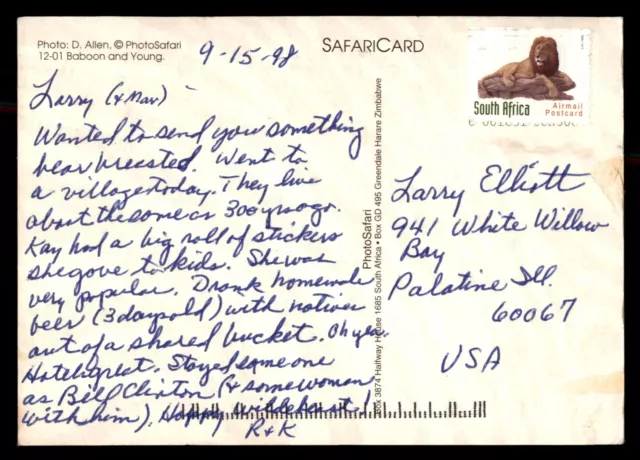 Photo: D. Allen, © PhotoSafari
12-01 Baboon and Young.
SAFARICARD
9-15-98
Larry (& Mav)
Wanted to send you something
bear breasted. Went to
a village today. They live
about the same as 300 yrs ago.
Kay had a big roll of stickers
she gave to kids. She was
very popular. Drank homemade
beer (3 days old) with natives
out of a shared bucket. Oh yea.
Hotel great. Stayed same one
as Bill Clinton (& some woman
with him). Happy wildebeast!
R+K
PhotoSafari
Box 3874 Halfway House 1685 South Africa • Box GD 495 Greendale Harare Zimbabwe
South Africa
Airmail
Postcard
Larry Elliott
941 White Willow
Bay
Palatine Ill.
60067
USA